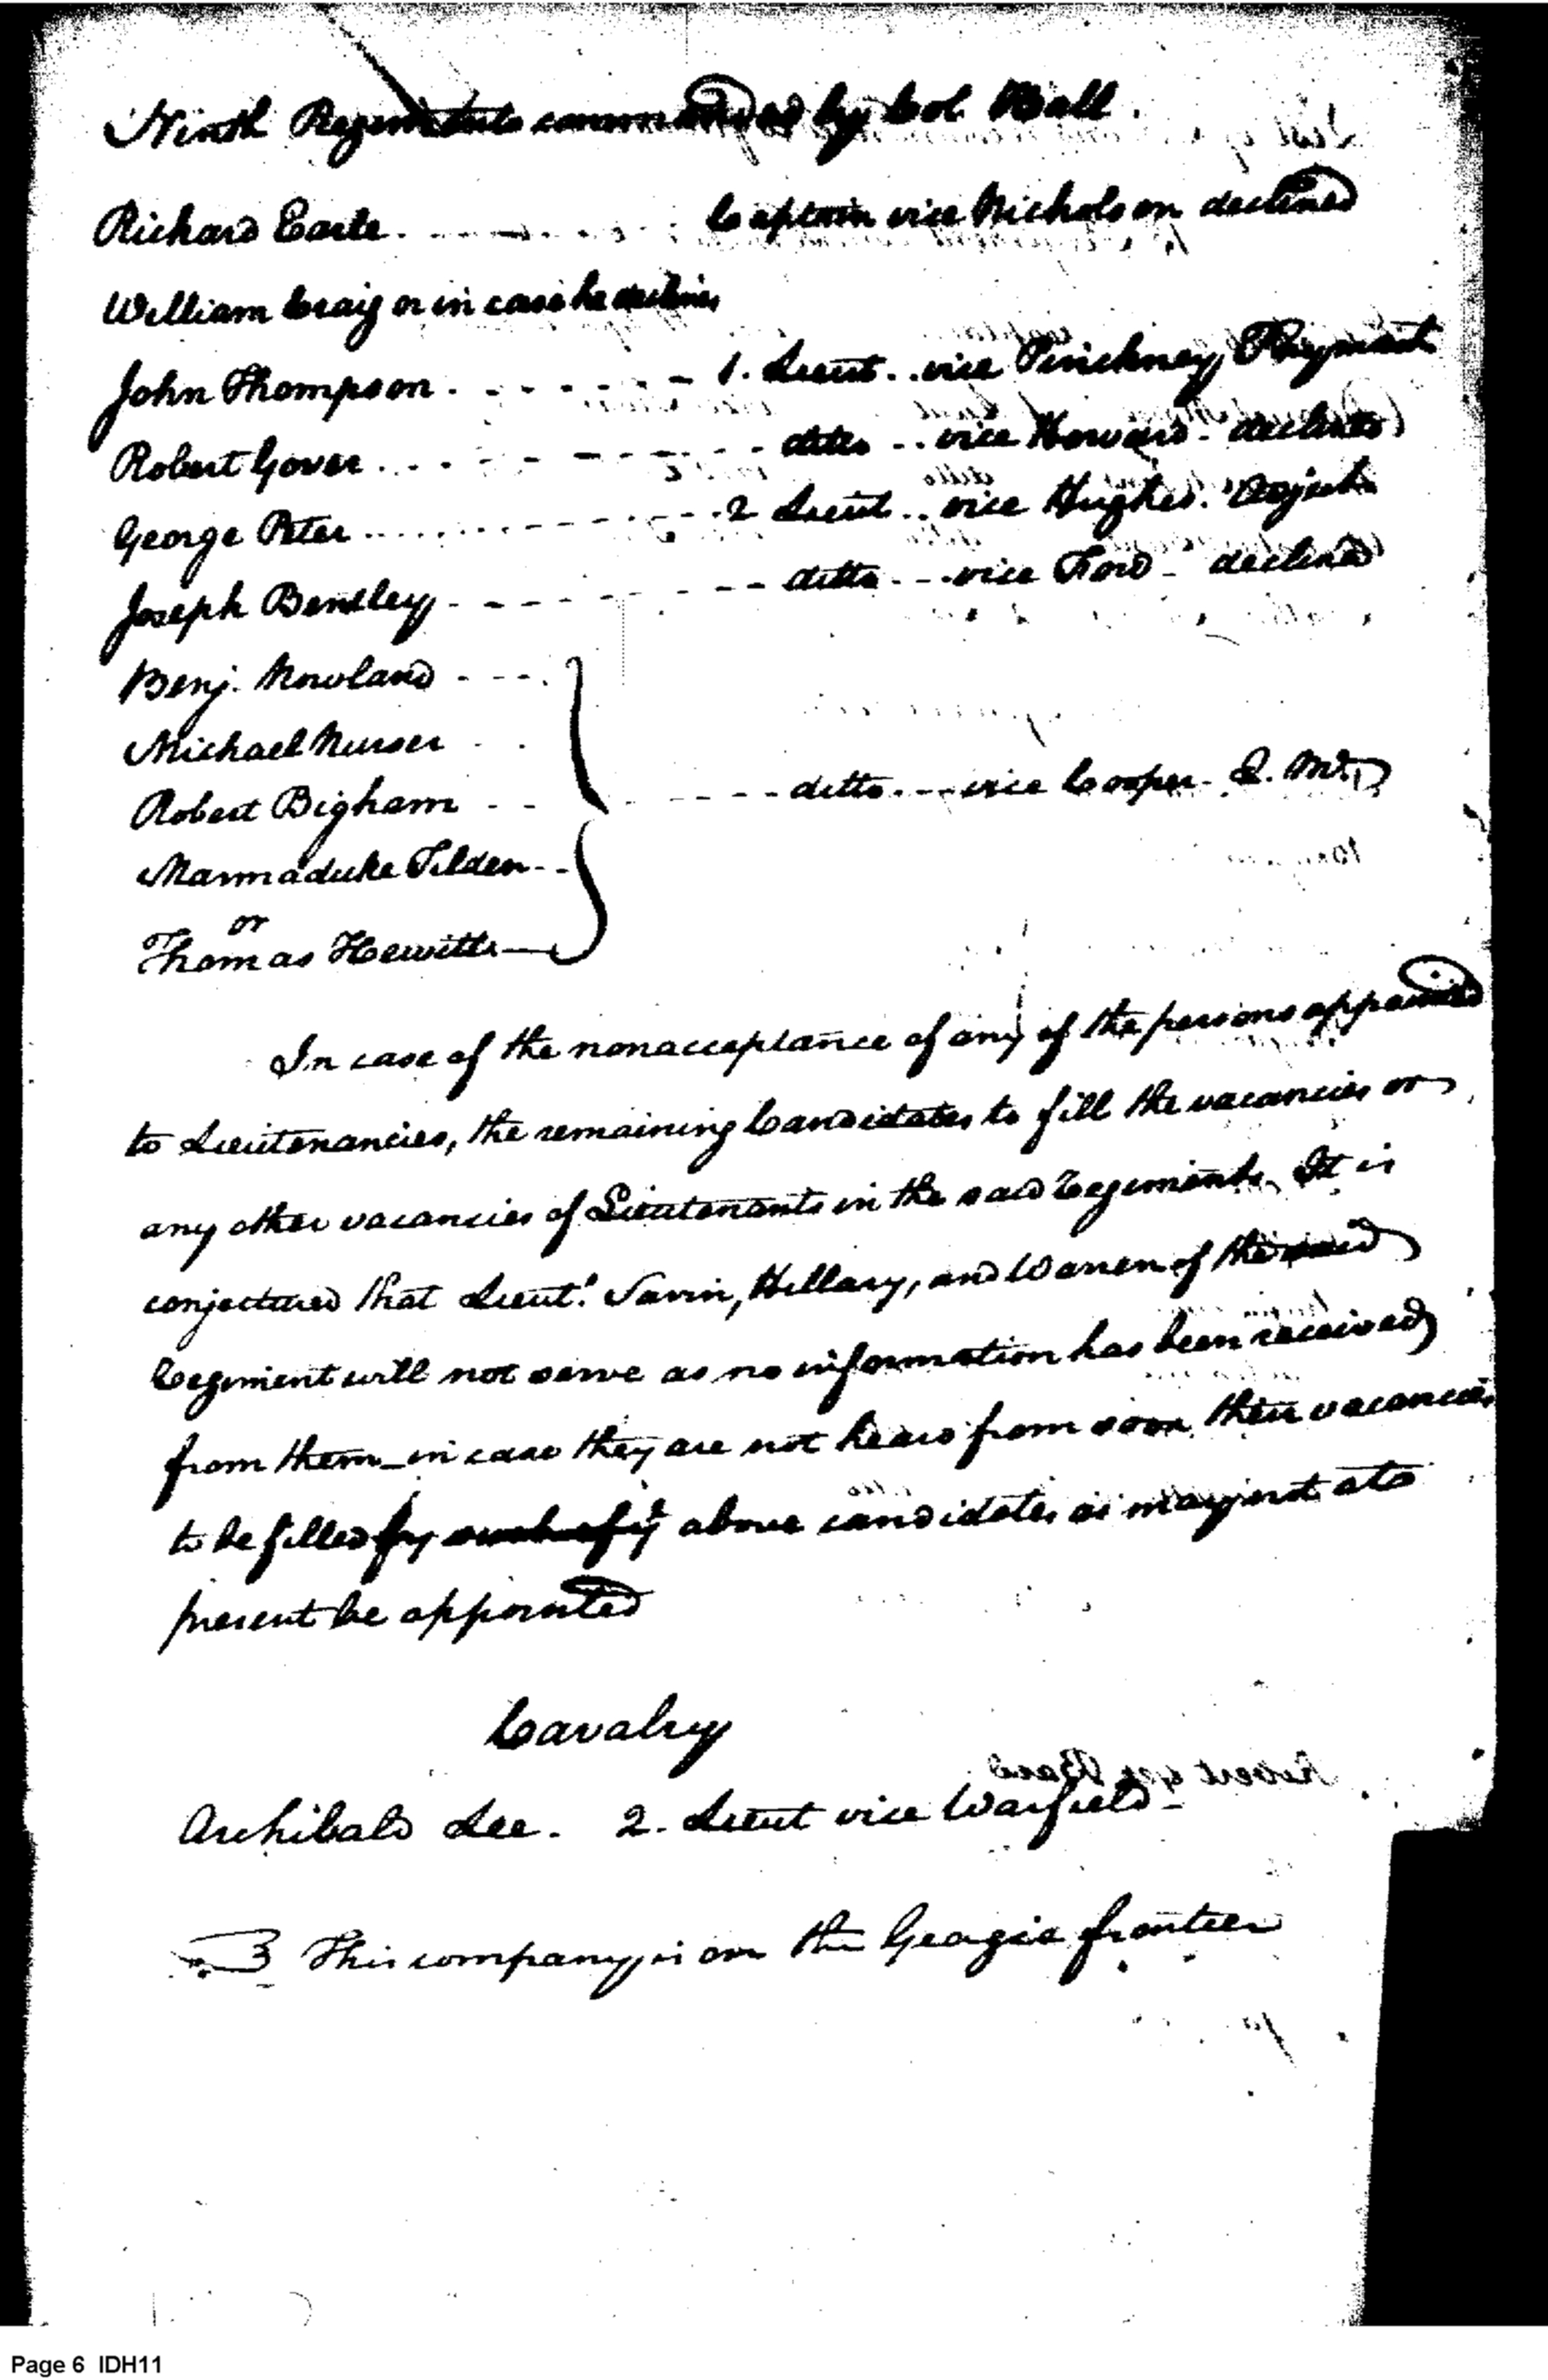 Ninth Regiment commanded by Col. Hall.
Richard Earle. - - - - - - - Captain vice Nicholson declined
William Craig or in case he declines
John Thompson. - - - - - - 1. Lieut. .. vice Pinckney Paymast
Robert Gover - - - - - - - - ditto .. vice Howard - declined
George Peter - - - - - - - - 2 Lieut .. vice Hughes. Adjut.
Joseph Bentley - - - - - - - ditto - - vice Ford - declined
Benj. Nowland - - -
Michael Nurser - -
Robert Bigham - - - - - - ditto - - vice Cooper - Q. Mr.
Marmaduke Tilden - -
or
Thomas Hewitt
In case of the nonacceptance of any of the persons appointed
to Lieutenancies, the remaining Candidates to fill the vacancies or
any other vacancies of Lieutenants in the said Regiment. It is
conjectured that Lieut.s Savin, Hillary, and Warren of the said
Regiment will not serve as no information has been received
from them - in case they are not heard from soon their vacancies
to be filled by such of ye above candidates as may not at
present be appointed
Cavalry
Archibald Lee. 2. Lieut vice Warfield -
This company is on the Georgia frontier
Page 6 IDH11